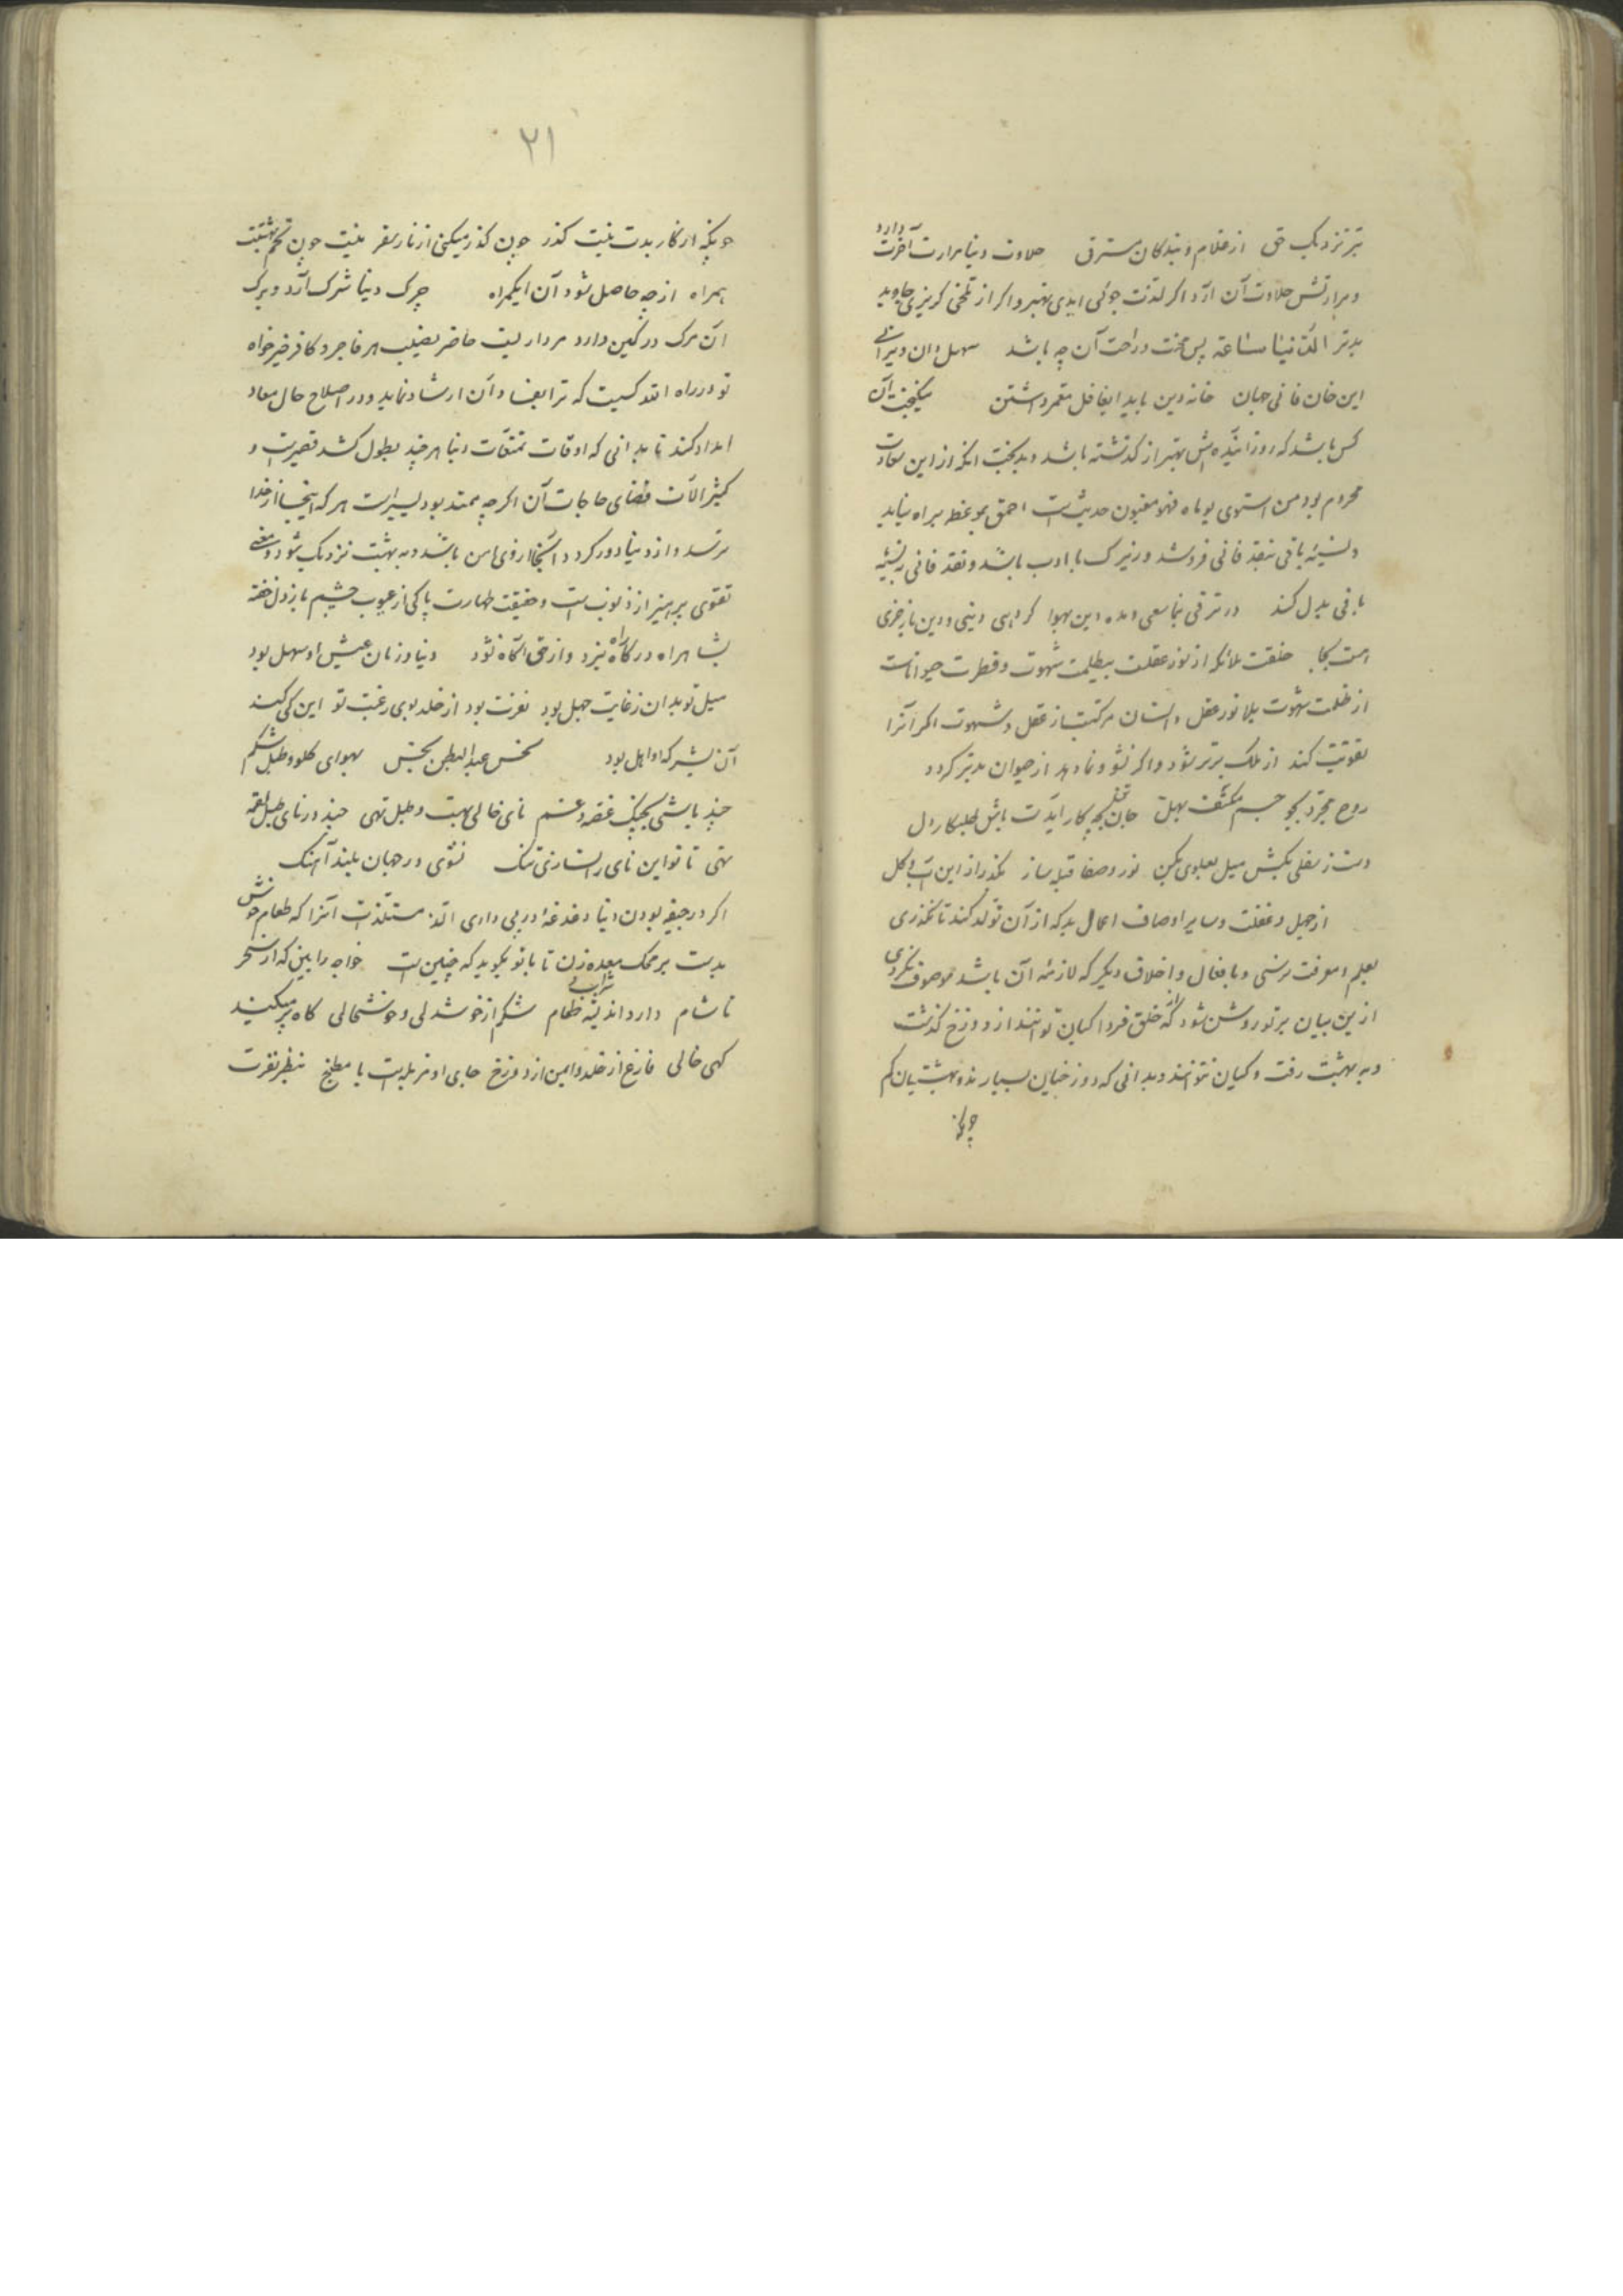 تر نزدیک حق از غلام و بندگان مسترق حلاوت دنیا مرارت آخرت دارد
و مرارتش حلاوت آن آرد اگر لذت جوئی ابدی بهتر و اگر از تلخی گریزی جاوید
بدتر الدنیا ساعة پس محنت و راحت آن چه باشد سهل دان ویرانی
این خان فانی جهان خانه دین باید ایغافل معمر داشتن نیکبخت آن
کس باشد که روز آینده‌اش بهتر از گذشته باشد و بدبخت آنکه از این سعادت
محروم بود من استوی یوماه فهو مغبون حدیث است احمق بموعظه براه نیاید
و نسیئه باقی بنقد فانی فروشد و زیرک با ادب باشد و نقد فانی به نسیئه
باقی بدل کند در ترقی نما سعی و مده دین بهوا گر دهی دینی و دین باز خری
است کجا خلقت ملائکه از نور عقلت بیظلمت شهوت و فطرت حیوانات
از ظلمت شهوت بلا نور عقل و انسان مرکبست از عقل و شهوت اگر آنرا
تقویت کند از ملک برتر شود و اگر نشو و نما دهد از حیوان بدتر گردد
روح مجرد بجو جسم مکثف بهل جان بچه کار آیدت باش طلبکار دل
دست ز سفلی بکش میل بعلوی بکن نور و صفا قبله ساز بگذر از این آب و گل
از جهل و غفلت و سایر اوصاف اعمال بد که از آن تولد کند تا نگذری
بعلم و معرفت نرسی و بافعال و اخلاق دیگر که لازمه آن باشد موصوف نگردی
ازین بیان بر تو روشن شود که خلق فردا کیان توانند از دوزخ گذشت
و به بهشت رفت و کیان نتوانند و بدانی که دوزخیان بسیارند و بهشتیان کم
چونکه
۲۱
چونکه از کار بدت نیست گذر چون گذر میکنی از نار سقر نیست چون تخم بهشتت
همراه از چه حاصل شود آن ایگمراه چرک دنیا شرک آرد و برک
آن مرگ در کمین دارد مرداریست حاضر نصیب هر فاجر و کافر خیرخواه
تو در راه الله کسیست که ترا بفساد آن ارشاد نماید و در اصلاح حال معاد
امداد کند تا بدانی که اوقات تمتعات دنیا هر چند بطول کشد قصیرست و
کثیر الآت قضای حاجات آن اگر چه ممتد بود یسیر است هر که اینجا از خدا
ترسد و از دنیا دور گردد آنجا از وی امن باشد و به بهشت نزدیک شود و معنی
تقوی پرهیز از ذنوب است و حقیقت طهارت پاکی از عیوب چشم باز دل خفته
بشاهراه درگاه نبرد و از حق آگاه نشود دنیا و زمان عیش او سهل بود
میل تو بدان ز غایت جهل بود نفرت بود از خلد بوی رغبت تو این کی کند
آن بشر که او اهل بود نحس عبد البطن بحبس بهوای گلو و طبل شکم
چند باشی بچنگ غصه و غم نای خالی بهست و طبل تهی چند در نای طبل لقمه
نهی تا تو این نای را نسازی تنگ نشوی در جهان بلند آهنگ
اگر در جیفه بودن دنیا دغدغه در پی داری الذ مستلذات آنرا که طعام خوش
بدست بر محک معده زن تا با تو بگوید که چنین است خواجه را بین که از سحر
تا شام دارد اندیشه شراب و طعام شکم از خوشدلی و خوشحالی گاه پر میکند
گهی خالی فارغ از خلد و ایمن از دوزخ جای او مزبله است یا مطبخ بنظر نفرت